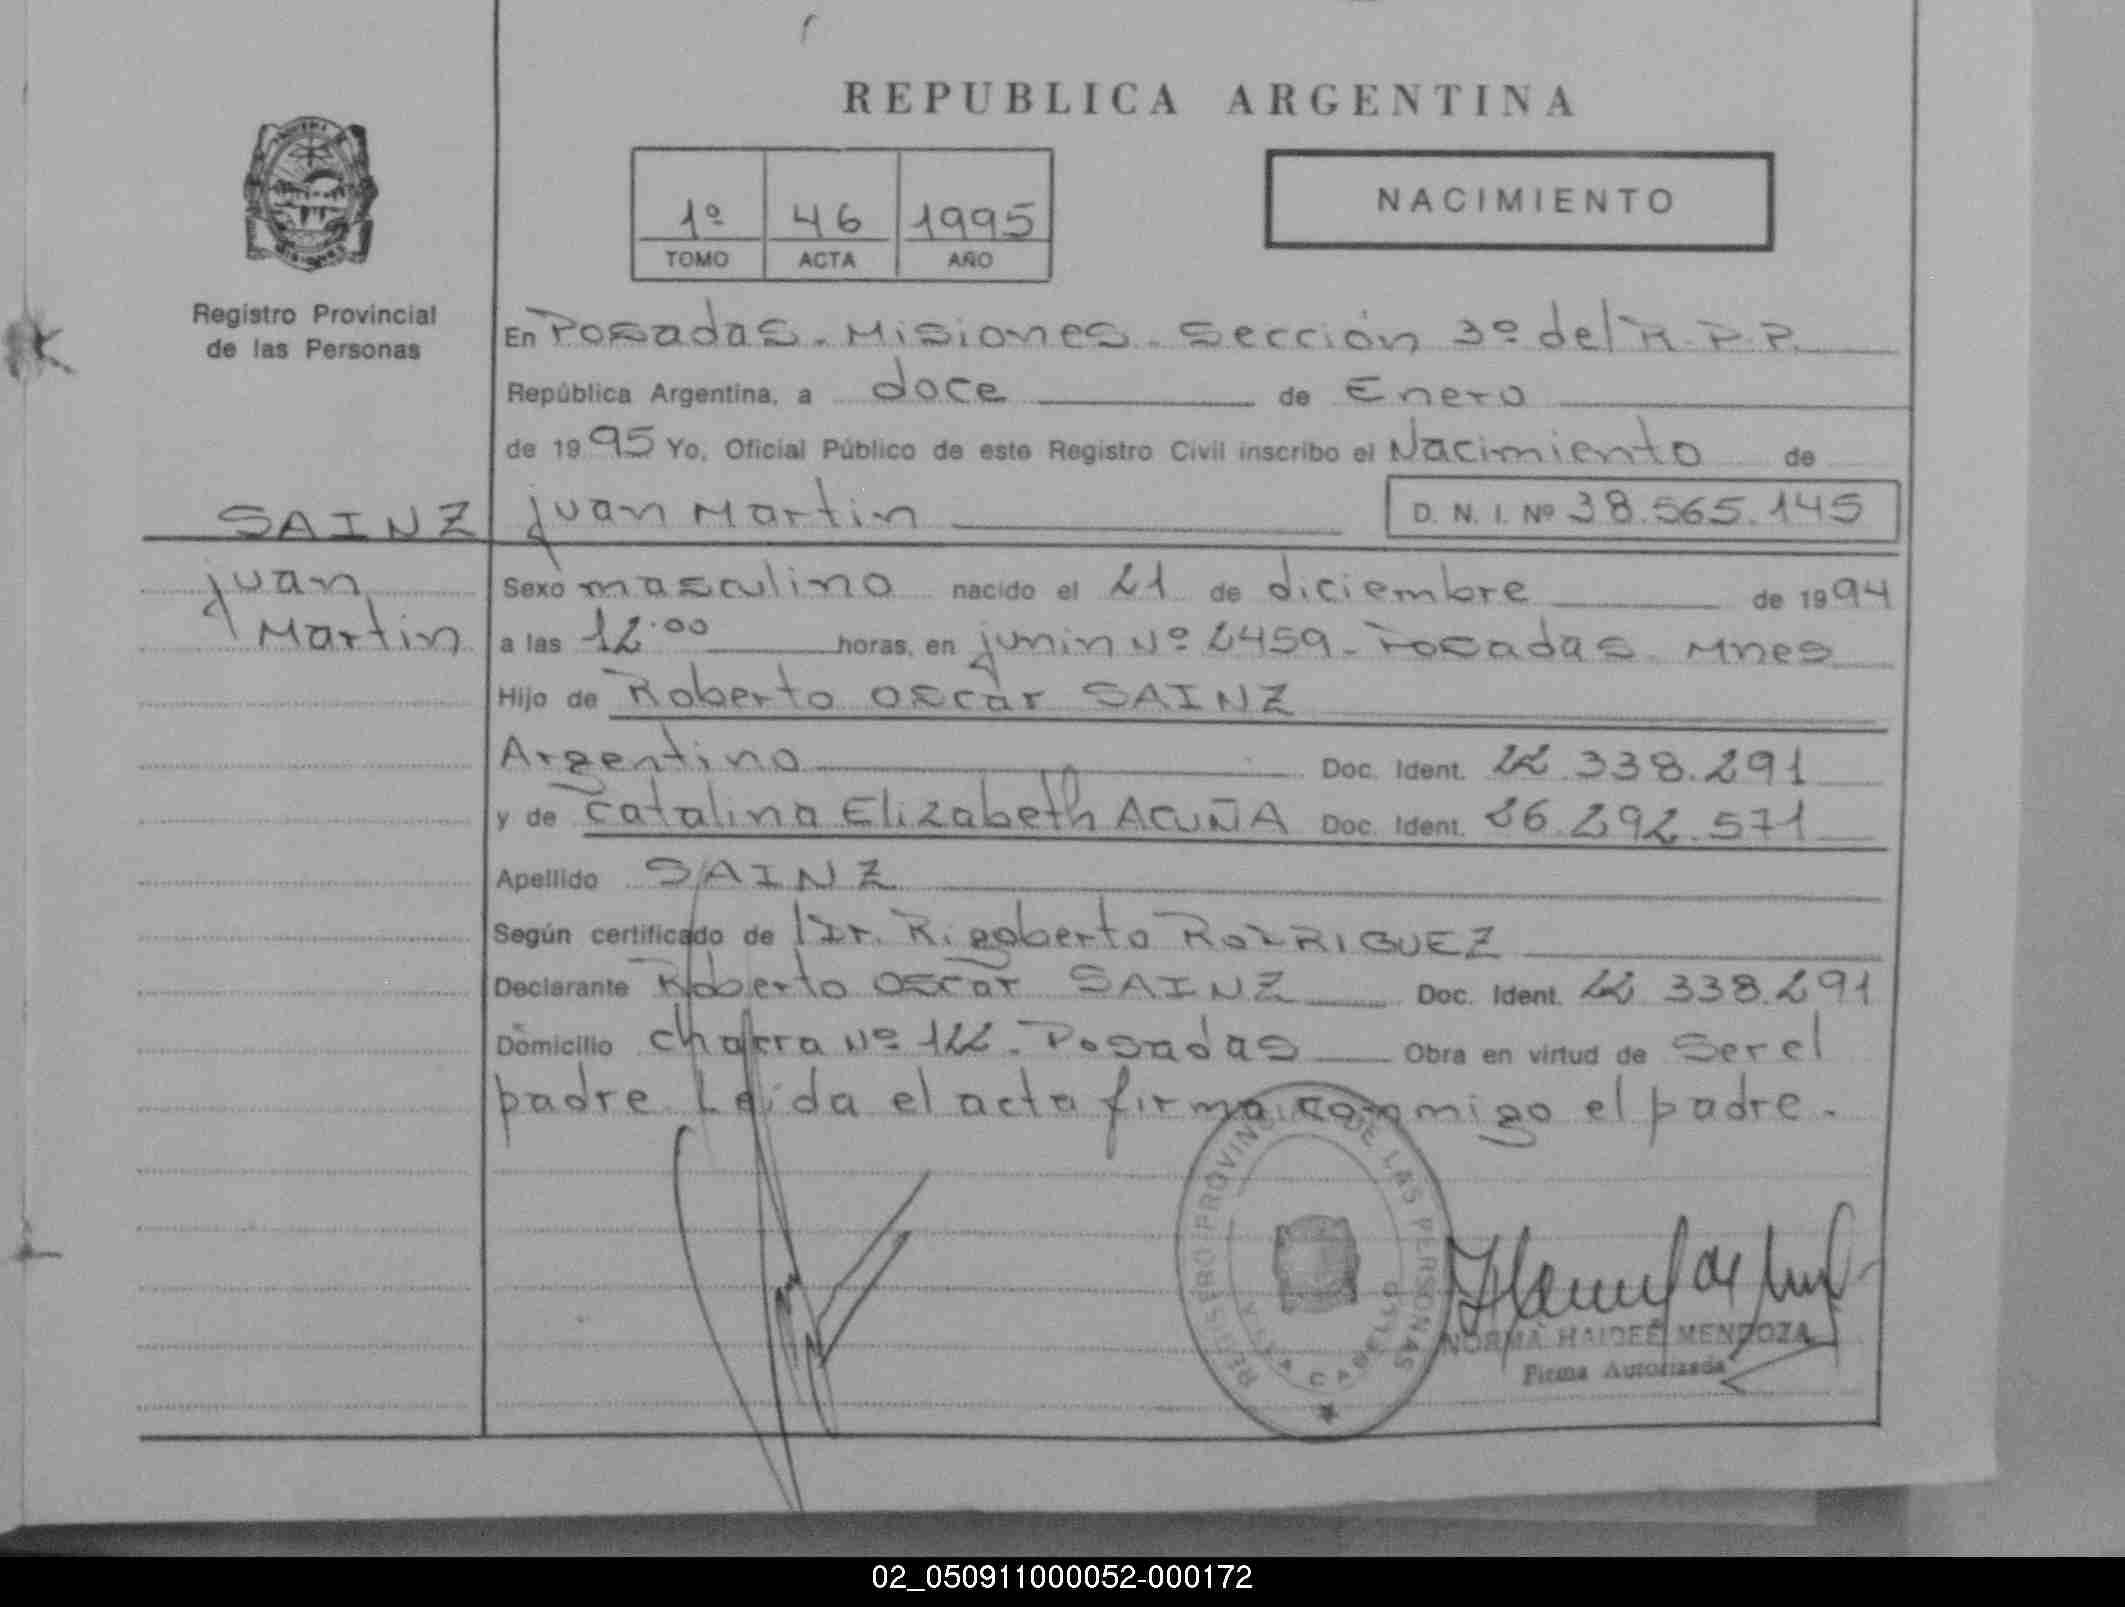 REPUBLICA ARGENTINA
1º 46 1995
TOMO ACTA AÑO
NACIMIENTO
Registro Provincial
de las Personas
En Posadas. Misiones. Sección 3º del R.P.P.
República Argentina, a doce de Enero
de 1995 Yo, Oficial Público de este Registro Civil inscribo el Nacimiento de
SAINZ juan Martin D. N. I. Nº 38.565.145
juan
Martin
Sexo masculino nacido el 21 de diciembre de 1994
a las 12.00 horas, en junin Nº 2459. Posadas. Mnes
Hijo de Roberto Oscar SAINZ
Argentino Doc. Ident. 22.338.291
y de Catalina Elizabeth ACUÑA Doc. Ident. 26.292.571
Apellido SAINZ
Según certificado de Dr. Rigoberto RODRIGUEZ
Declarante Roberto Oscar SAINZ Doc. Ident. 22.338.291
Domicilio Chacra Nº 122. Posadas Obra en virtud de Ser el
padre. Leida el acta firma conmigo el padre.
REGISTRO PROVINCIAL DE LAS PERSONAS
NORMA HAIDEE MENDOZA
Firma Autorizada
02_050911000052-000172